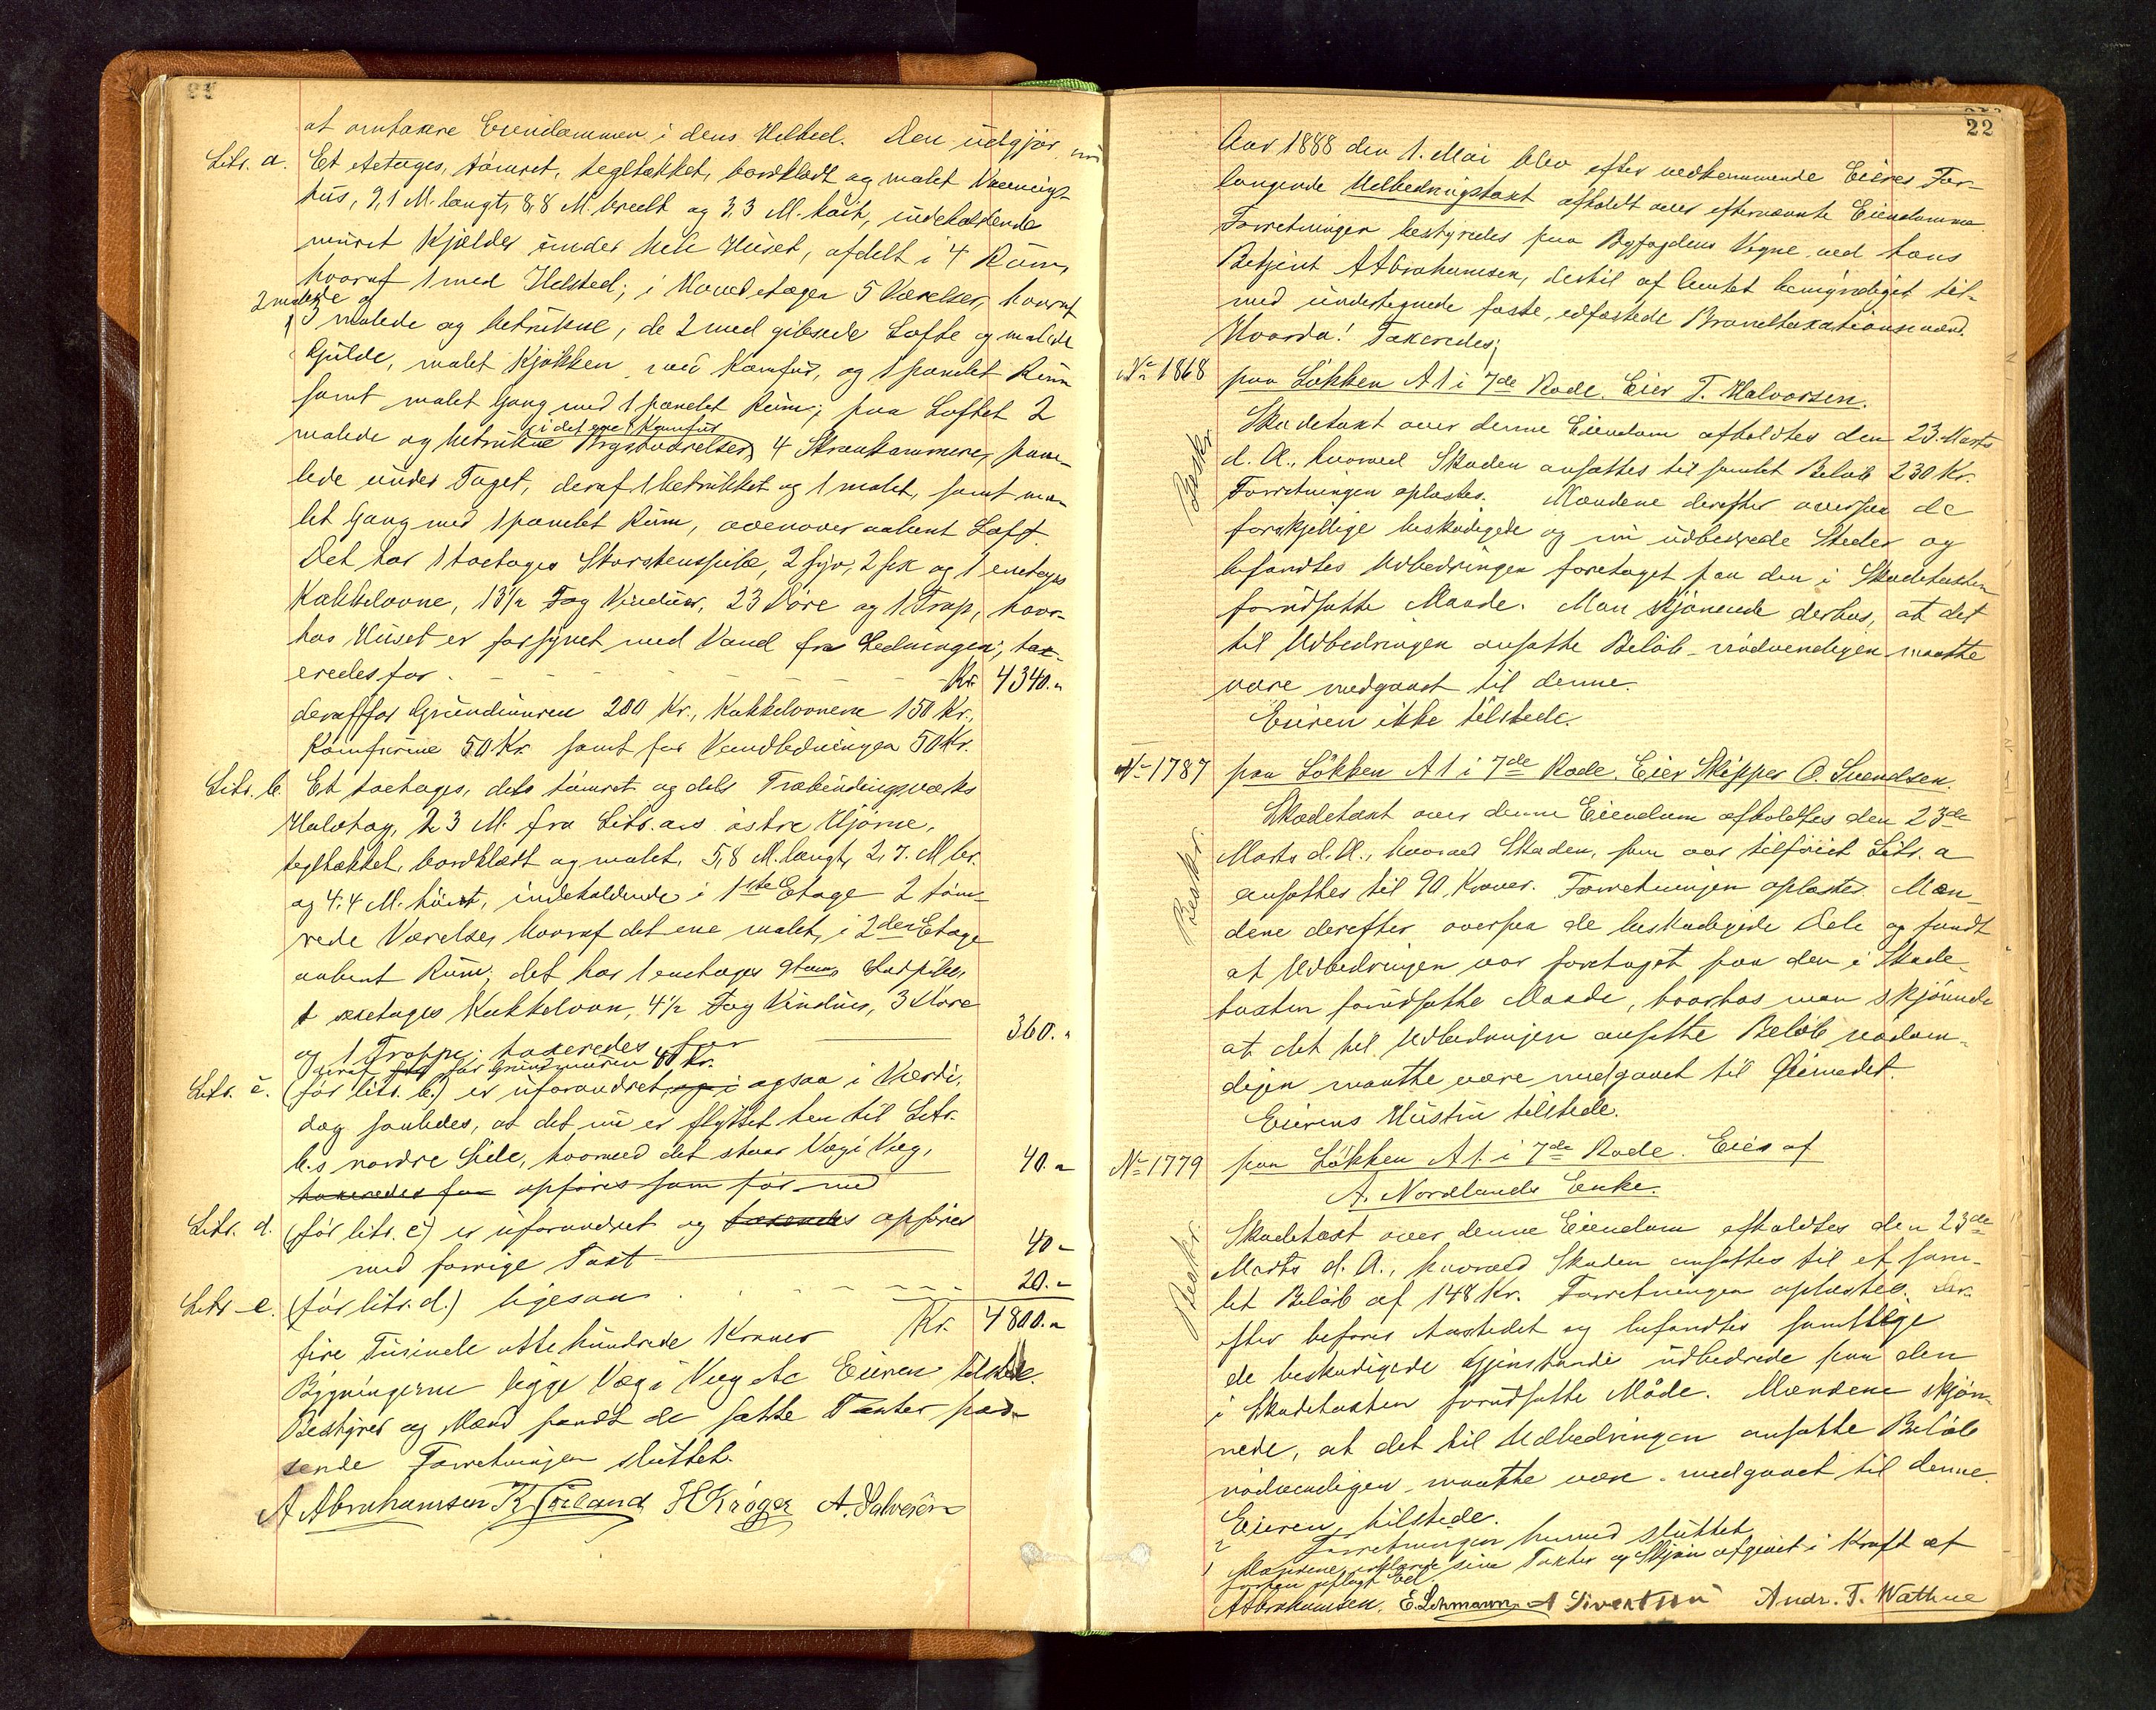 at omtaxere Eiendommen i dens Helhed. Den udgjør nu
Litr. a. Et etetages, tømret, tegltækket, bordklædt og malet Vaanings-
hus, 9,1 M. langt, 8,8 M. bredt og 3,3 M. høit, indeholdende
muret Kjælder under hele Huset, afdelt i 4 Rum,
hvoraf 1 med Ildsted; i Hovedetagen 5 Værelser, hvoraf
2 malede og
3 malede og betrukne, de 2 med gibsede Lofte og malede
Gulve, malet Kjøkken med Komfur, og 1 panelet Rum
samt malet Gang med 1 panelet Rum; paa Loftet 2
i det ene 1 Komfur
malede og betrukne Qvistværelser, 4 Skraakammere, pane-
lede under Taget, deraf 1 betrukket og 1 malet, samt ma-
let Gang med 1 panelet Rum, ovenover aabent Loft
Det har 1 toetages Skorstenspibe, 2 fyr, 2 sex og 1 enetages
Kakkelovne, 13½ Fag Vinduer, 23 Døre og 1 Trap, hvor-
hos Huset er forsynet med Vand fra Ledningen; tax-
eredes for - - - - - - - Kr. 4340.-
deraf for Grundmuren 200 Kr., Kakkelovnene 150 Kr.,
Komfurene 50 Kr. samt for Vandledningen 50 Kr.
Litr. b. Et toetages, dels tømret og dels Træbindingsværks
Halvtag, 2,3 M. fra Litr. a.s østre Hjørne,
tegltækket, bordklædt og malet, 5,8 M. langt, 2,7 M. br.
og 4,4 M. høit, indeholdende i 1ste Etage 2 tøm-
rede Værelser, hvoraf det ene malet, i 2den Etage
aabent Rum; det har 1 enetages Skorstenspibe,
1 enetages Kakkelovn, 4½ Fag Vinduer, 3 Døre
og 1 Trappe; taxeredes for 360.-
Deraf for Grundmuren 40 Kr.
Litr. c. (før litr. b.) er uforandret, ogsaa i Værdi,
dog saaledes, at det nu er flyttet hen til Litr.
b.s nordre Side, hvormed det staar Væg i Væg,
taxeredes for opføres som før med 40.-
Litr. d. (før litr. c) er uforandret og taxeredes opføres
med forrige Taxt 40-
Litr. e. (før litr. d.) ligesaa - - - - 20.-
fire Tusinde otte hundrede Kroner Kr. 4800.-
Bygningerne ligge Væg i Væg etc Eieren tilstede.
Bestyrer og Mænd fandt de satte Taxter pas-
sende Forretningen sluttet.
A Abrahamsen K Friland H Krøger A. Salvesen
22
Aar 1888 den 1. Mai blev efter vedkommende Eieres For-
langende Udbedringstaxt afholdt over efternævnte Eiendomme
Forretningen bestyredes paa Byfogdens Vegne ved hans
Betjent A Abrahamsen, dertil af Amtet bemyndiget til-
med undertegnede faste, edfæstede Brandtaxationsmænd.
Hvorda! Taxeredes;
No 1868 paa Løkken A 1 i 7de Rode. Eier T. Halvorsen.
Beskr.
Skadetaxt over denne Eiendom afholdtes den 23. Marts
d. A., hvorved Skaden ansattes til samlet Beløb 230 Kr.
Forretningen oplæstes. Mændene derefter oversaa de
forskjellige beskadigede og nu udbedrede Steder og
befandtes Udbedringen foretaget paa den i Skadetaxten
forudsatte Maade. Man skjønnede derhos, at det
til Udbedringen ansatte Beløb nødvendigen maatte
være medgaaet til denne.
Eieren ikke tilstede.
No 1787 paa Løkken A 1 i 7de Rode. Eier Skipper O. Svendsen.
Beskr.
Skadetaxt over denne Eiendom afholdtes den 23de
Marts d. A., hvorved Skaden, som var tilføiet Litr. a
ansattes til 90 Kroner. Forretningen oplæstes. Mæn-
dene derefter oversaa de beskadigede Dele og fandt
at Udbedringen var foretaget paa den i Skade-
taxten forudsatte Maade, hvorhos man skjønnede
at det til Udbedringen ansatte Beløb nødven-
digen maatte være medgaaet til Øiemedet.
Eierens Hustru tilstede.
No 1779 paa Løkken A 1. i 7de Rode. Eies af
A. Nordlands Enke.
Beskr.
Skadetaxt over denne Eiendom afholdtes den 23de
Marts d. A., hvorved Skaden ansattes til et sam-
let Beløb af 148 Kr. Forretningen oplæstes. Der-
efter befores Aastedet og befandtes samtlige
de beskadigede Gjenstande udbedrede paa den
i Skadetaxten forudsatte Måde. Mændene skjøn-
nede, at det til Udbedringen ansatte Beløb
nødvendigen maatte være medgaaet til denne.
Eieren tilstede.
Forretningen hermed sluttet
Mændene erklærede sine Taxter og Skjøn afgivet i Kraft af
forhen aflagt Ed.
A Abrahamsen. E. Lehmann A Sivertsen Andr. T. Wathne